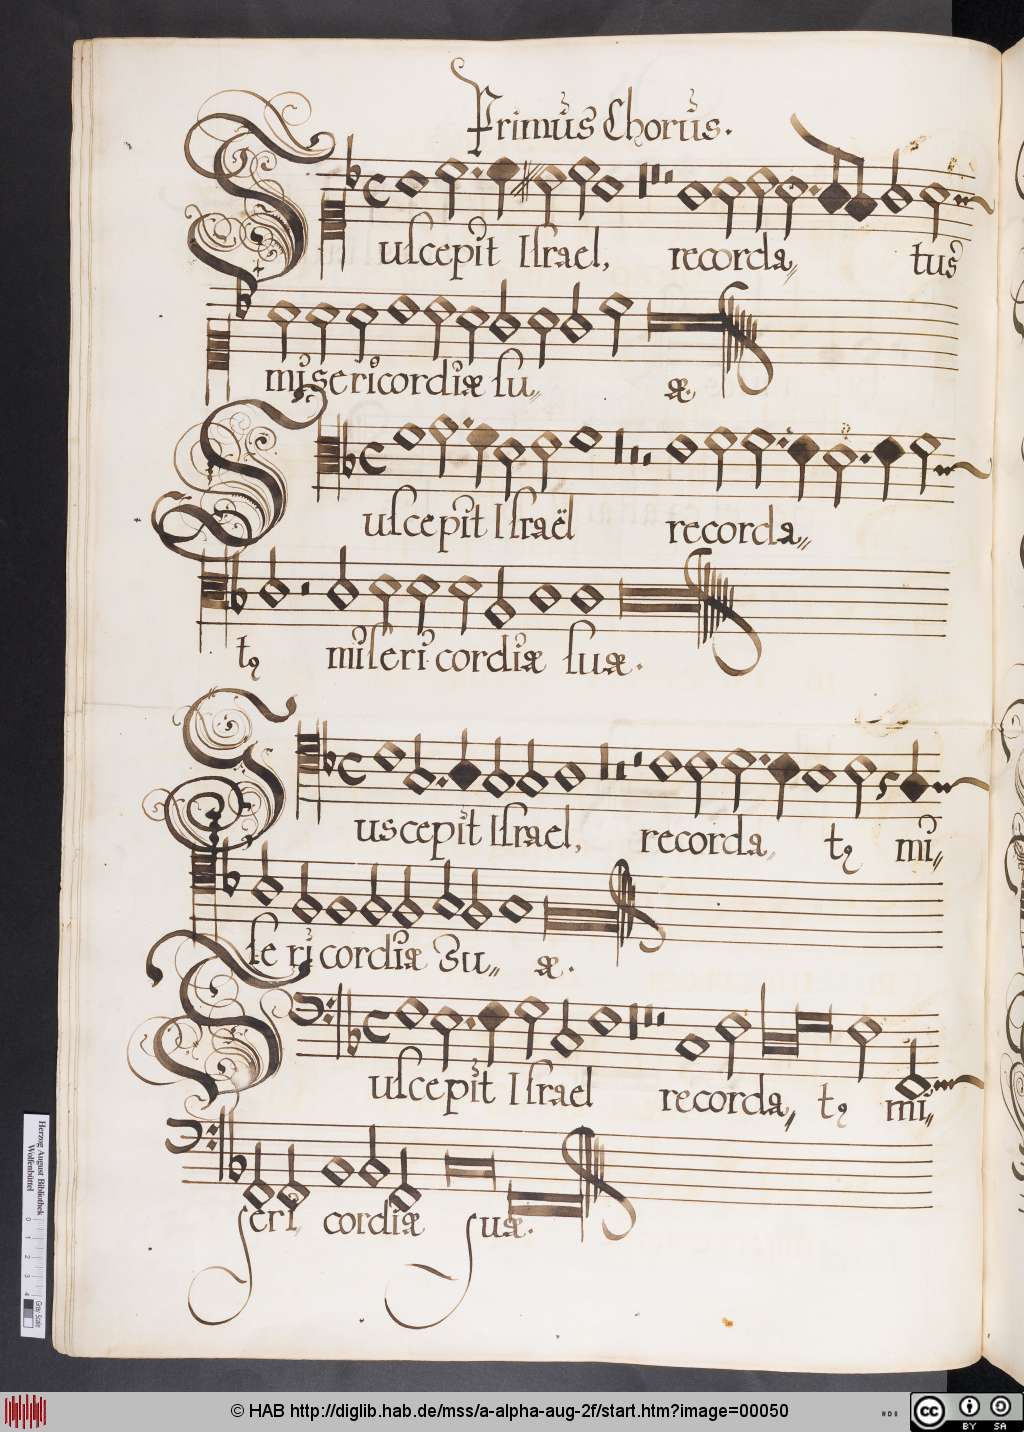 Primus Chorus.
Suscepit Israel, recorda„ tus
misericordiæ su„ æ.
Suscepit Israël recorda„
tꝰ misericordiæ suæ.
Suscepit Israel, recorda„ tꝰ mi„
sericordiæ Su„ æ.
Suscepit Israel recorda„ tꝰ mi„
sericordiæ suæ.
Herzog August Bibliothek
Wolfenbüttel
0 1 2 3 4
Gray Scale
© HAB http://diglib.hab.de/mss/a-alpha-aug-2f/start.htm?image=00050
cc BY SA